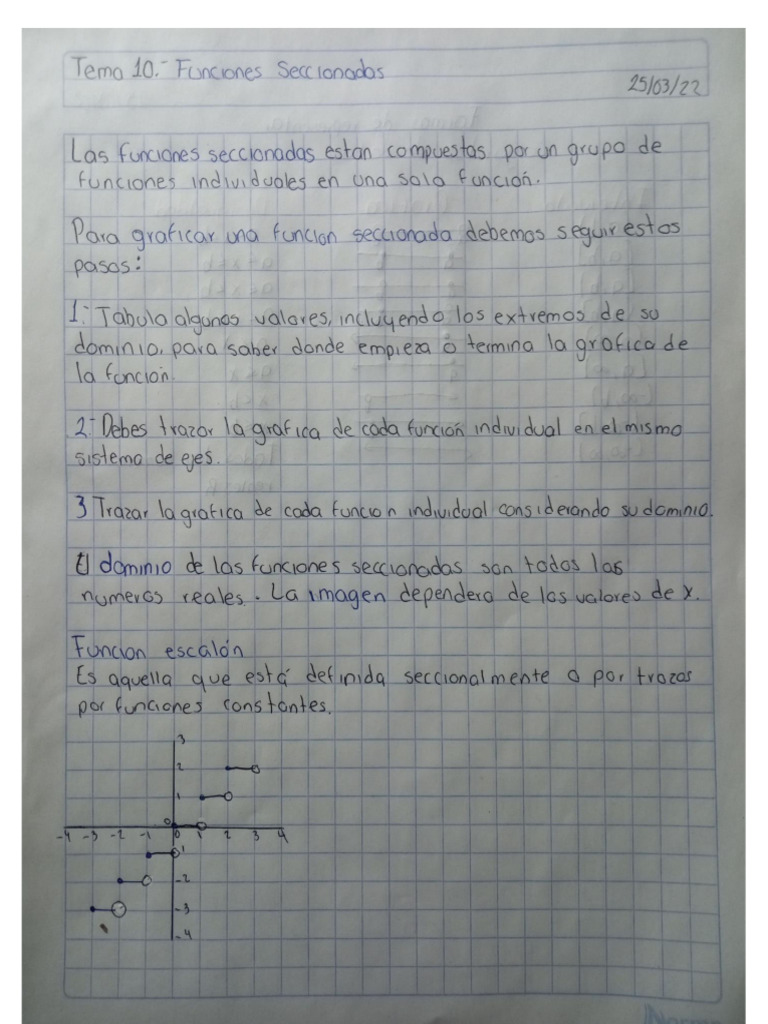 Tema 10.- Funciones Seccionadas
25/03/22
Las funciones seccionadas estan compuestas por un grupo de
funciones individuales en una sola función.
Para graficar una funcion seccionada debemos seguir estos
pasos:
1.- Tabula algunos valores, incluyendo los extremos de su
dominio, para saber donde empieza o termina la grafica de
la función.
2.- Debes trazar la grafica de cada función individual en el mismo
sistema de ejes.
3 Trazar la grafica de cada funcion individual considerando su dominio.
El dominio de las funciones seccionadas son todos los
numeros reales. La imagen dependera de los valores de x.
Funcion escalón
Es aquella que está definida seccionalmente o por trozos
por funciones constantes.
3
2
1
0
-4 -3 -2 -1 0 1 2 3 4
-1
-2
-3
-4